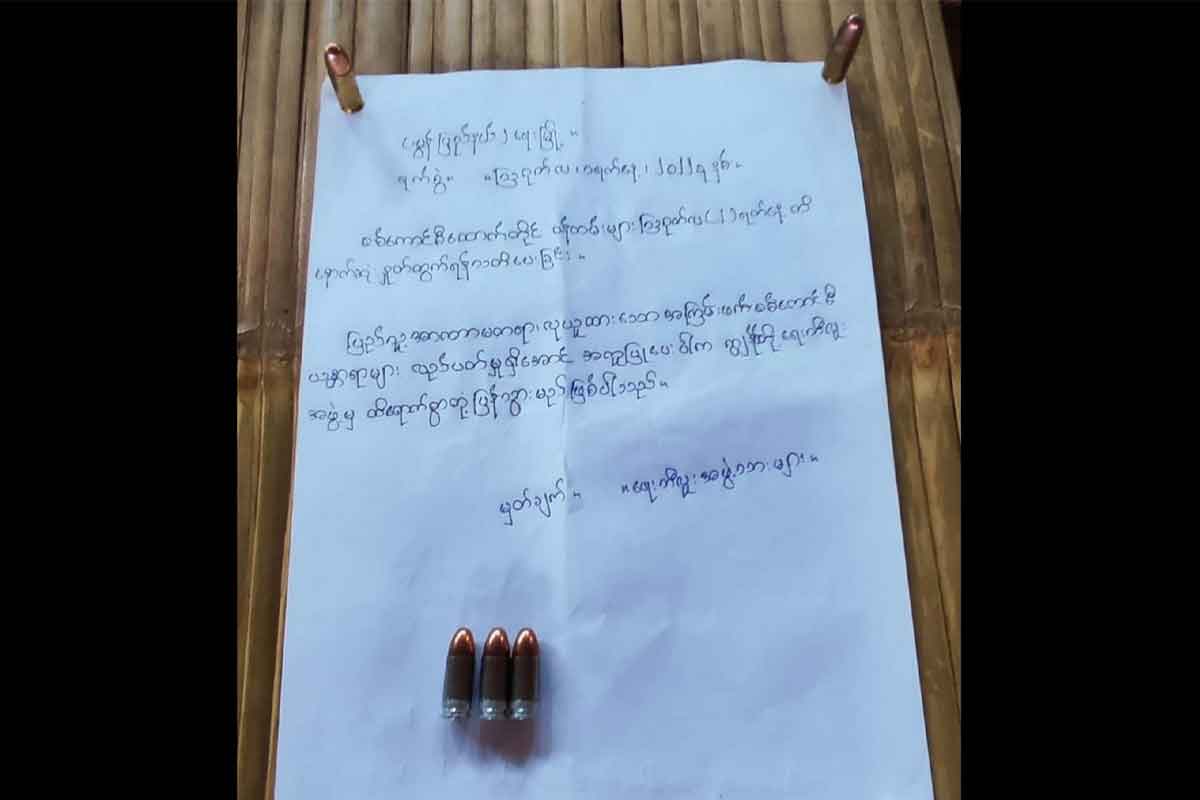 မွန်ပြည်နယ်၊ ရေးမြို့။
ရက်စွဲ။ ဩဂုတ်လ ၊ ၁ရက်နေ့၊ ၂၀၂၂ ခုနှစ်။
စစ်ကောင်စီထောက်တိုင် ဝန်ထမ်းများ ဩဂုတ်လ(၂)ရက်နေ့ ထိ
နောက်ဆုံး နှုတ်ထွက်ရန်သတိပေးခြင်း။
ပြည်သူ့အာဏာမတရားလုယူထားသော အကြမ်းဖက်စစ်ကောင်စီ
ယန္တရားများ လည်ပတ်မှုရှိအောင် အကူပြုပေးပါက ကျွန်ုပ်တို့ ရေးဘီလူး
အဖွဲ့မှ ထိရောက်စွာတုံ့ပြန်သွားမည်ဖြစ်ပါသည်။
မှတ်ချက်။ "ရေးဘီလူးအဖွဲ့သားများ"